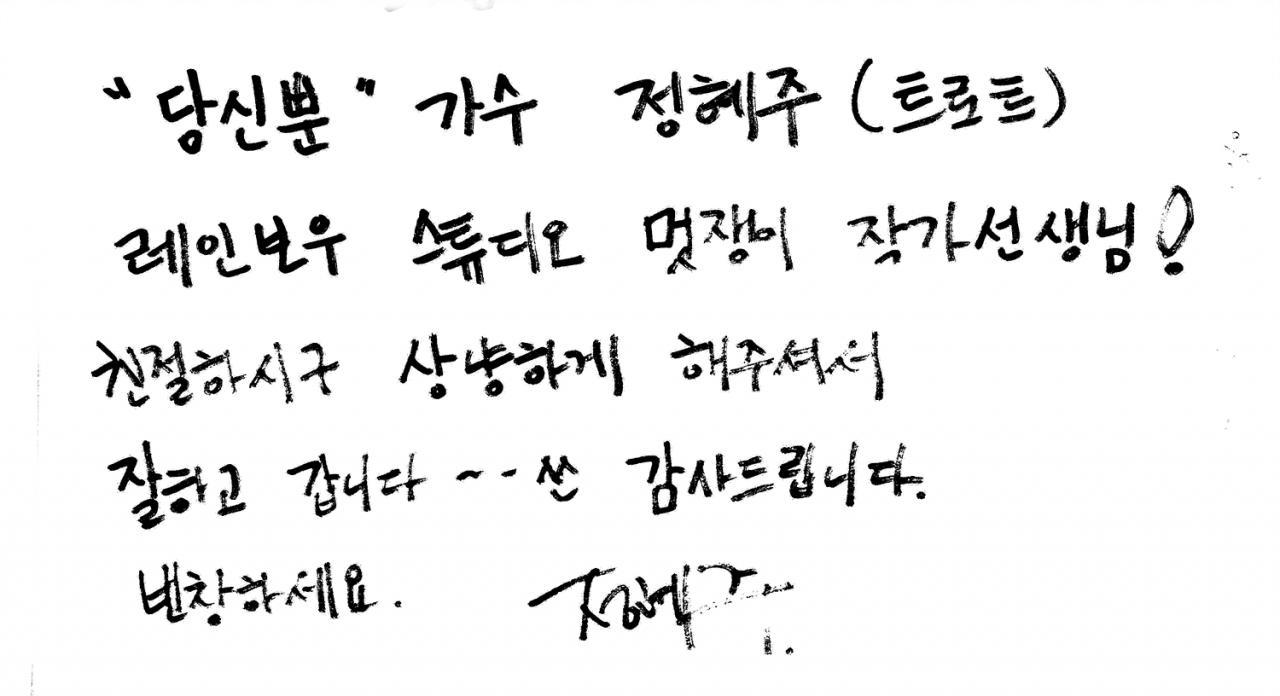 "당신뿐" 가수 정혜주 (트로트)
레인보우 스튜디오 멋쟁이 작가선생님!
친절하시구 상냥하게 해주셔서
잘하고 갑니다~~ 감사드립니다.
하세요. 정혜주.